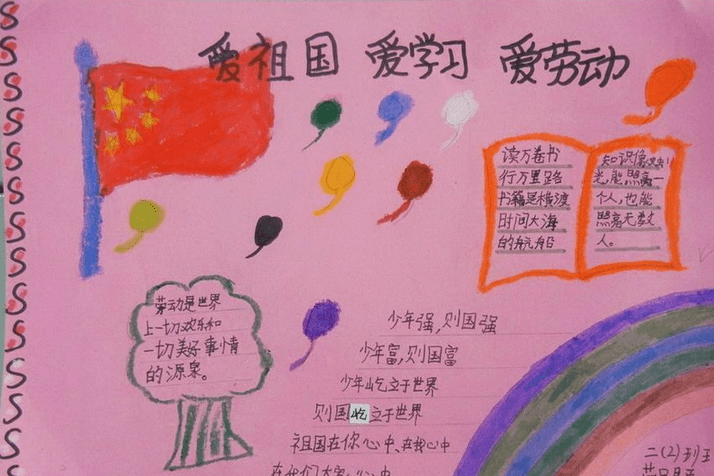 爱祖国 爱学习 爱劳动
读万卷书
行万里路
书籍是横渡
时间大海
的航船
知识像烛
光,能照亮一
个人,也能
照亮无数
人。
劳动是世界
上一切欢乐和
一切美好事情
的源泉。
少年强,则国强
少年富,则国富
少年屹立于世界
则国屹立于世界
祖国在你心中、在我心中
在他们大家心中
二(2)班王